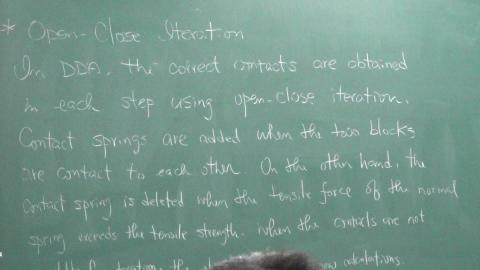 * Open-Close Iteration
In DDA, the correct contacts are obtained
in each step using open-close iteration.
Contact springs are added when the two blocks
are contact to each other. On the other hand, the
contact spring is deleted when the tensile force of the normal
spring exceeds the tensile strength. When the contacts are not
the calculations.